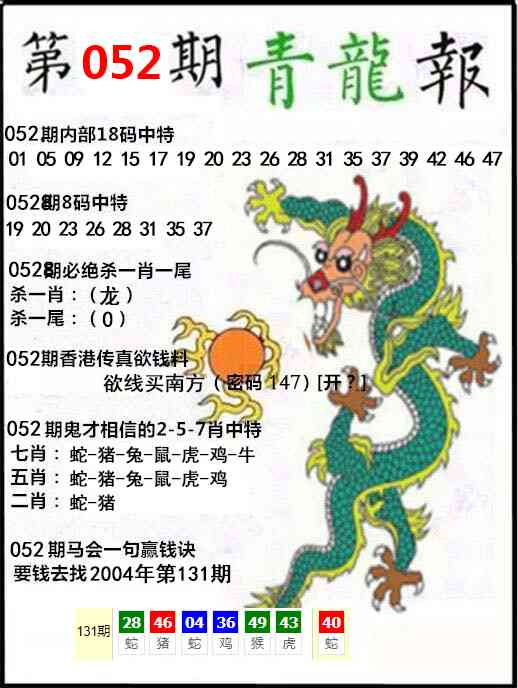 第052期青龍報
052期内部18码中特
01 05 09 12 15 17 19 20 23 26 28 31 35 37 39 42 46 47
052期8码中特
19 20 23 26 28 31 35 37
052期必绝杀一肖一尾
杀一肖:(龙)
杀一尾:(0)
052期香港传真欲钱料
欲线买南方(密码147)[开?]
052期鬼才相信的2-5-7肖中特
七肖:蛇-猪-兔-鼠-虎-鸡-牛
五肖:蛇-猪-兔-鼠-虎-鸡
二肖:蛇-猪
052期马会一句赢钱诀
要钱去找2004年第131期
131期 28 46 04 36 49 43 40
蛇 猪 蛇 鸡 猴 虎 蛇